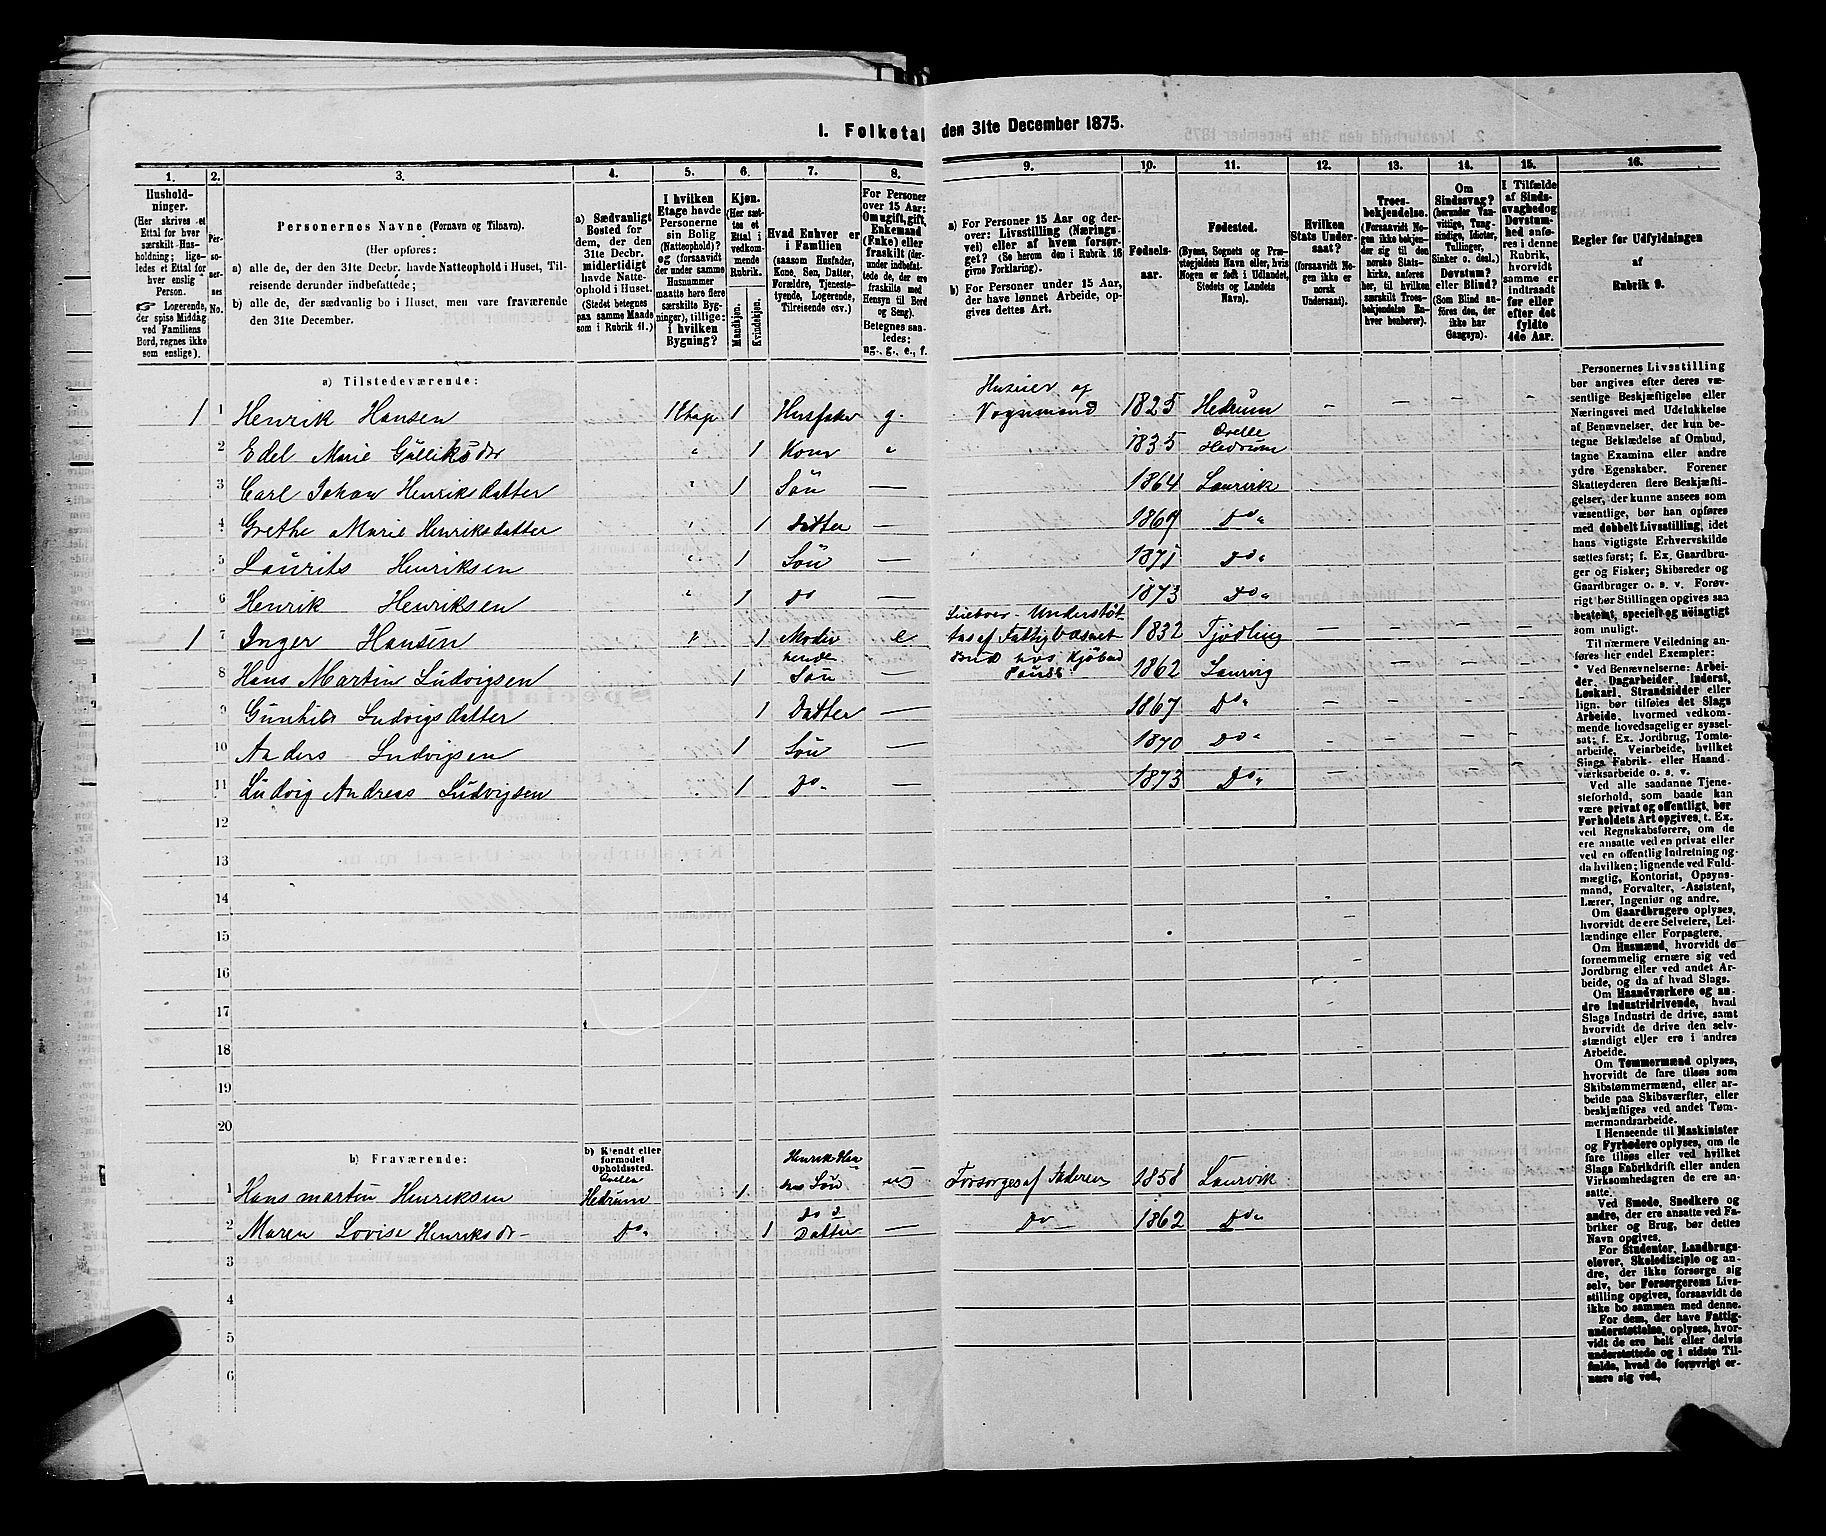 1. Folketal den 31te December 1875.
1. 2. 3. 4. 5. 6. 7. 8. 9. 10. 11. 12. 13. 14. 15. 16.
Hushold-
ninger.
(Her skrives et
Ettal for hver
særskilt Hus-
holdning; lige-
ledes et Ettal for
hver enslig
Person.
☞ Logerende,
der spise Middag
ved Familiens
Bord, regnes ikke
som enslige).
Per-
so-
ner-
nes
No.
Personernes Navne (Fornavn og Tilnavn).
(Her opføres:
a) alle de, der den 31te Decbr. havde Natteophold i Huset, Til-
reisende derunder indbefattede;
b) alle de, der sædvanlig bo i Huset, men vare fraværende
den 31te December.
a) Sædvanligt
Bosted for
dem, der den
31te Decbr.
midlertidigt
havde Natte-
ophold i Huset.
(Stedet betegnes
paa samme Maade
som i Rubrik 11.)
I hvilken
Etage havde
Personerne
sin Bolig
(Natteophold)?
og (forsaavidt
der under samme
Husnummer
maatte høre flere
særskilte Byg-
ninger), tillige:
I hvilken
Bygning?
Kjøn.
(Her sæt-
tes et
Ettal i
vedkom-
mende
Rubrik.
Mandkjøn.
Kvindekjøn.
Hvad Enhver er
i Familien
(saasom Husfader,
Kone, Søn, Datter,
Forældre, Tjeneste-
tyende, Logerende,
Tilreisende osv.)
For Personer
over 15 Aar:
Om ugift, gift,
Enkemand
(Enke) eller
fraskilt
(under indbefat-
tede de, der ere
fraskilte med
Hensyn til Bord
og Seng).
Betegnes saa-
ledes:
ug., g., e., f.
a) For Personer 15 Aar og der-
over: Livsstilling (Nærings-
vei) eller af hvem forsør-
get? (Se herom den i Rubrik 16
givne Forklaring).
b) For Personer under 15 Aar,
der have lønnet Arbeide, op-
gives dettes Art.
Fødsels-
aar.
Fødested.
(Byens, Sognets og Præ-
stegjeldets Navn eller, hvis
Nogen er født i Udlandet,
Stedets og Landets
Navn).
Hvilken
Stats Under-
saat?
(forsaavidt No-
gen ikke er
norsk
Undersaat).
Troes-
bekjendelse.
(Forsaavidt No-
gen ikke bekjen-
der sig til den
norske Stats-
kirke, anføres
her, til hvilken
særskilt Troes-
bekjendelse En-
hver henhører).
Om
Sindssvag?
(herunder Van-
vittige, Tung-
sindige, Idioter,
Tullinger,
Sinker o. desl.)
Døvstum?
eller Blind?
(Som Blind an-
føres den, der
ikke har
Gangsyn).
I Tilfælde
af Sinds-
svaghed og
Døvstum-
hed anfø-
res i denne
Rubrik,
hvorvidt
samme er
indtraadt
før eller
efter det
fyldte
4de Aar.
Regler for Udfyldningen
af
Rubrik 9.
a) Tilstedeværende:
1 1 Henrik Hansen 1 Etage 1 Husfader g. Huseier og Vognmand 1825 Hedrum
2 Edel Marie Gulliksdr „ 1 Kone „ 1835 Qvelle Hedrum
3 Carl Johan Henriksdatter „ 1 Søn — 1864 Laurvik
4 Grethe Marie Henriksdatter „ 1 Datter — 1869 Do „
5 Laurits Henriksen „ 1 Søn — 1871 Do „
6 Henrik Henriksen „ 1 do — 1873 Do „
1 7 Inger Hansen „ 1 Moder e Understøt-
tes af Fattigvæsnet 1832 Tjødling
8 Hans Martin Ludvigsen 1 hendes Søn — Bud hos 1862 Laurvig
9 Gunhild Ludvigsdatter 1 Datter — 1867 Do „
10 Anders Ludvigsen 1 Søn — 1870 Do „
11 Ludvig Andreas Ludvigsen 1 Do „ 1873 Do „
12
13
14
15
16
17
18
19
20
b) Fraværende:
b) Kjendt eller
formodet
Opholdssted.
1 Hans Martin Henriksen Qvelle Hedrum 1 Henrik Han
sens Søn ug Forsørges af Faderen 1858 Laurvik
2 Maren Lovise Henriksdr Do „ 1 Do s Datter — Do 1862 Do „
3
4
5
6
Personernes Livsstilling
bør angives efter deres væ-
sentlige Beskjæftigelse eller
Næringsvei med Udelukkelse
af Benævnelser, der kun be-
tegne Beklædelse af Ombud,
tagne Examina eller andre
ydre Egenskaber. Forener
Skatteyderen flere Beskjæfti-
gelser, der kunne ansees som
væsentlige, bør han opføres
med dobbelt Livsstilling, idet
hans vigtigste Erhvervskilde
sættes først; f. Ex. Gaardbru-
ger og Fisker; Skibsreder og
Gaardbruger o. s. v. Forøv-
rigt bør Stillingen opgives saa
bestemt, specielt og nöiagtigt
som muligt.
Til nærmere Veiledning an-
føres her endel Exempler:
Ved Benævnelserne: Arbei-
der, Dagarbeider, Inderst,
Løskarl, Strandsidder eller
lign. bør tilføies det Slags
Arbeide, hvormed vedkom-
mende hovedsagelig er syssel-
sat; f. Ex. Jordbrug, Tomte-
arbeide, Veiarbeide, hvilket
Slags Fabrik- eller Haand-
værksarbeide o. s. v.
Ved alle saadanne Tjene-
steforhold, som baade kan
være privat og offentligt, bør
Forholdets Art opgives, t. Ex.
ved Regnskabsførere, om de
ere ansatte ved en privat eller
ved en offentlig Indretning og
da hvilken; lignende ved Fuld-
mægtig, Kontorist, Opsyns-
mand, Forvalter, Assistent,
Lærer, Ingeniør og andre.
Om Gaardbrugere oplyses,
hvorvidt de ere Selveiere, Lei-
lændinge eller Forpagtere.
Om Husmænd, hvorvidt de
fornemmelig ernære sig ved
Jordbrug eller ved andet Ar-
beide, og da af hvad Slags.
Om Haandværkere og an-
dre Industridrivende, hvad
Slags Industri de drive, samt
hvorvidt de drive den selv-
stændigt eller ere i andres
Arbeide.
Om Tømmermænd oplyses,
hvorvidt de fare tilsøs som
Skibstømmermænd, eller ar-
beide paa Skibsværfter, eller
beskjæftiges ved andet Tøm-
mermandsarbeide.
I Henseende til Maskinister
og Fyrbødere oplyses, om de
fare tilsøs eller ved hvilket
Slags Fabrikdrift eller anden
Virksomhedsgren de ere an-
satte.
Ved Smede, Snedkere og
andre, der ere ansatte ved Fa-
briker og Brug, bør dettes
Navn opgives.
For Studenter, Landbrugs-
elever, Skoledisciple og an-
dre, der ikke forsørge sig
selv, bør Forsørgerens Livs-
stilling opgives, forsaavidt de
ikke bo sammen med denne.
For dem, der have Fattig-
understøttelse, oplyses, hvor-
vidt de ere helt eller delvis
understøttede og i sidste Til-
fælde, hvad de forøvrigt er-
nære sig ved.